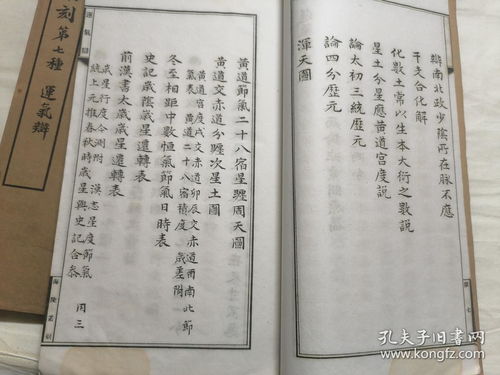 刻第七種 運氣辯
辯南北政少陰所在脉不應
干支合化解
化數土常以生本大衍之數說
星土分星應黃道宮度說
論太初三統歷元
論四分歷元
渾天圖
黃道節氣二十八宿星躔周天圖
黃道交赤道分躔次圖
星土
黃道宿度戌交赤道卯辰交赤道酉南北節
氣表 黃道二十八宿積度 歲差附
冬至相距中數恒氣節氣日時表
史記歲陰歲星還轉表
前漢書太歲歲星還轉表
歲星行度合測附 漢志星度節氣
統上元推春秋時歲星與史記合參
運氣辯
閃三
孔夫子旧书网
www.kongfz.com